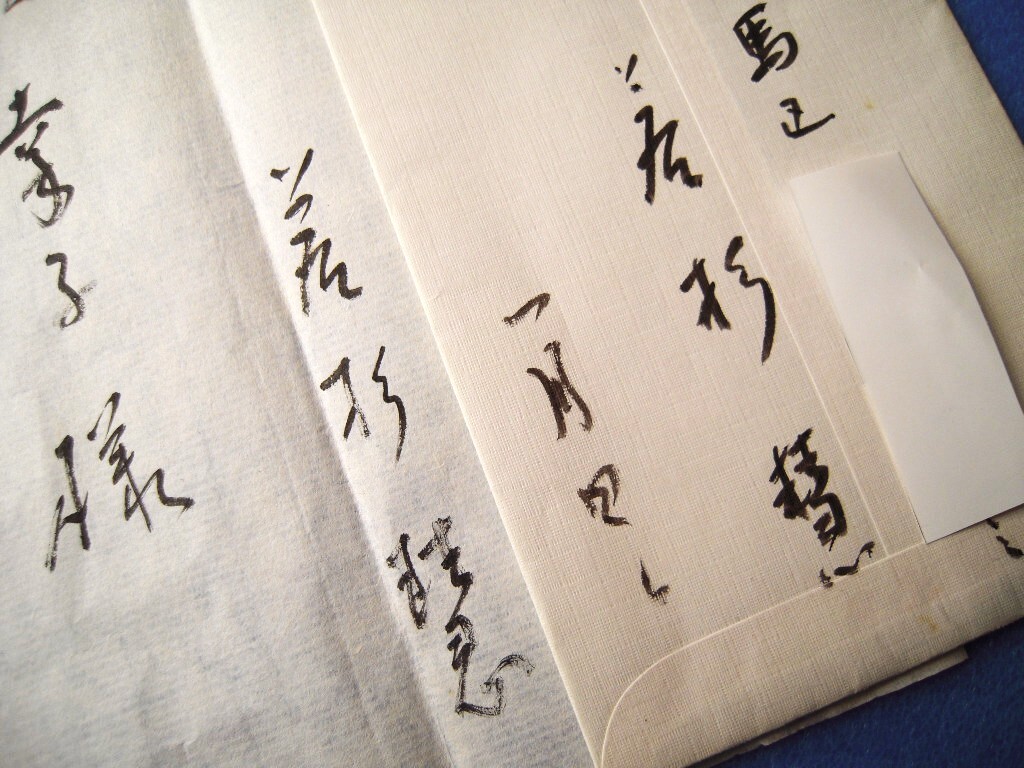 馬込
若杉慧
一月
若杉慧
幸子様